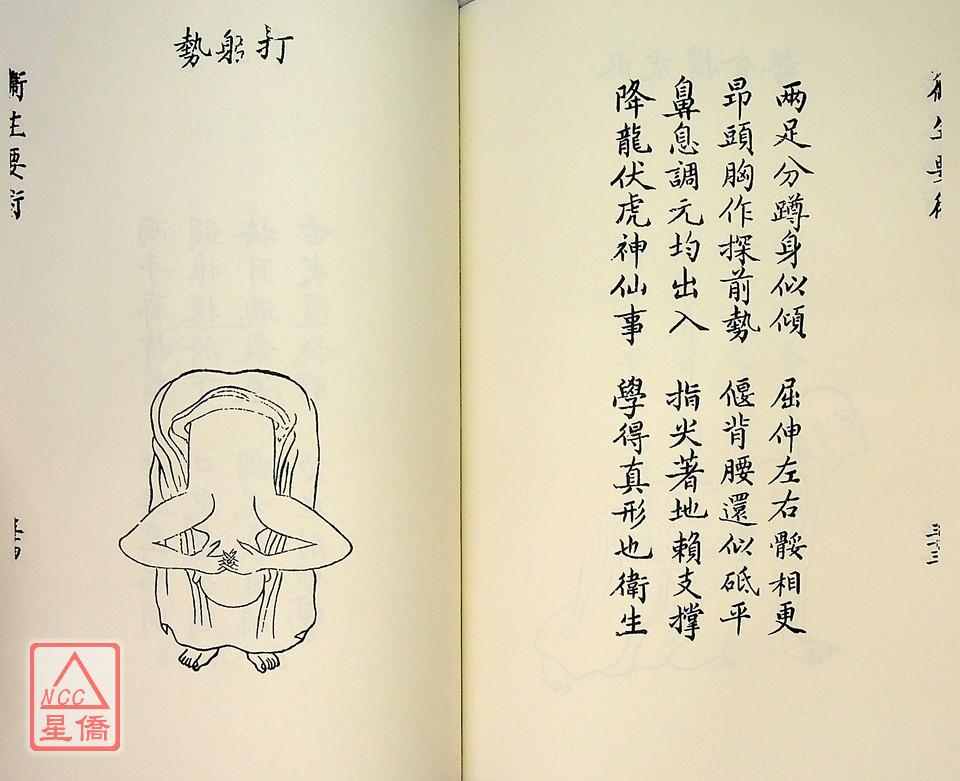 兩足分蹲身似傾 屈伸左右骽相更
昂頭胸作探前勢 偃背腰還似砥平
鼻息調元均出入 指尖著地賴支撐
降龍伏虎神仙事 學得真形也衛生
打躬勢
衛生要術
NCC
星僑